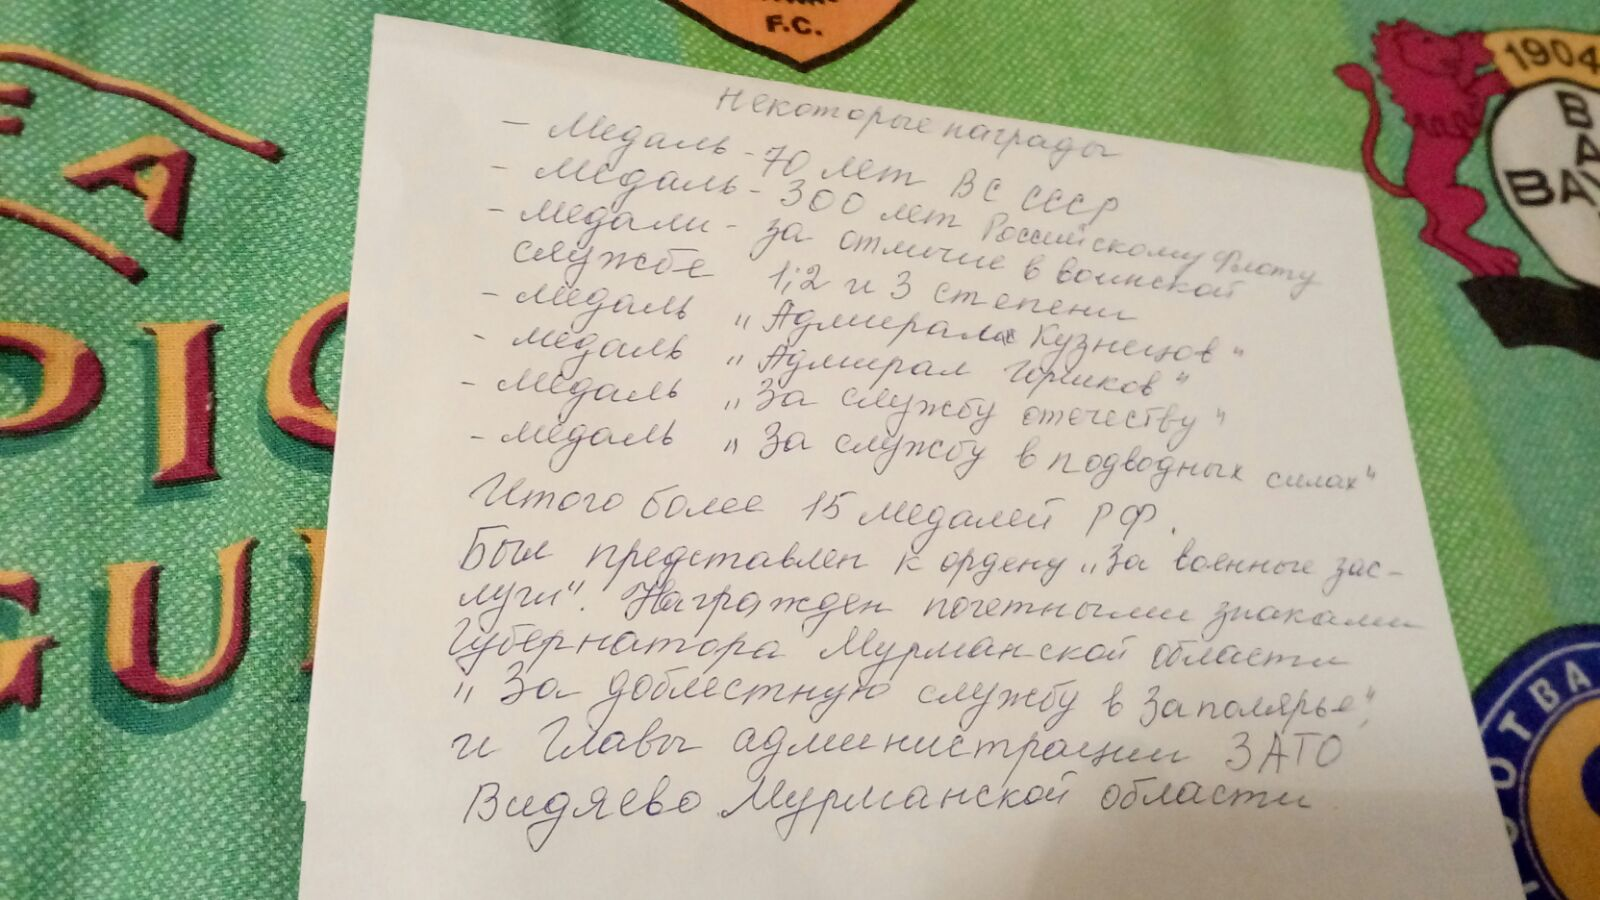 F.C.
1904
BA
BAY
EA
DIO
GUE
ОТВА
Некоторые награды
- Медаль - 70 лет ВС СССР
- Медаль - 300 лет Российскому Флоту
- Медали - за отличие в воинской
службе 1;2 и 3 степени
- медаль „Адмирала Кузнецов“
- медаль „Адмирал Горшков“
- медаль „За службу отечеству“
- медаль „За службу в подводных силах“
Итого более 15 медалей РФ.
Был представлен к ордену „За военные зас-
луги“. Награжден почетными знаками
Губернатора Мурманской области
„За доблестную службу в Заполярье“,
и Главы администрации ЗАТО
Видяево Мурманской области